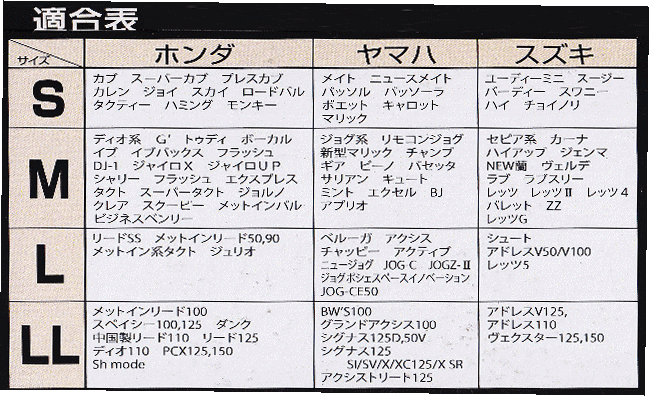 適合表
サイズ ホンダ ヤマハ スズキ
S
カブ　スーパーカブ　プレスカブ
カレン　ジョイ　スカイ　ロードパル
タクティー　ハミング　モンキー
メイト　ニュースメイト
パッソル　パッソーラ
ポエット　キャロット
マリック
ユーディーミニ　スージー
バーディー　スワニー
ハイ　チョイノリ
M
ディオ系　G'　トゥディ　ボーカル
イブ　イブパックス　フラッシュ
DJ-1　ジャイロX　ジャイロUP
シャリー　フラッシュ　エクスプレス
タクト　スーパータクト　ジョルノ
クレア　スクーピー　メットインパル
ビジネスベンリー
ジョグ系　リモコンジョグ
新型マリック　チャンプ
ギア　ビーノ　パセッタ
サリアン　キュート
ミント　エクセル　BJ
アプリオ
セピア系　カーナ
ハイアップ　ジェンマ
NEW蘭　ヴェルデ
ラブ　ラブスリー
レッツ　レッツⅡ　レッツ４
パレット　ZZ
レッツG
L
リードSS　メットインリード50,90
メットイン系タクト　ジュリオ
ベルーガ　アクシス
チャッピー　アクティブ
ニュージョグ　JOG-C　JOGZ-Ⅱ
ジョグポシェスペースイノベーション
JOG-CE50
シュート
アドレスV50/V100
レッツ5
LL
メットインリード100
スペイシー100,125　ダンク
中国製リード110　リード125
ディオ110　PCX125,150
Sh mode
BW'S100
グランドアクシス100
シグナス125D,50V
シグナス125
SI/SV/X/XC125/X SR
アクシストリート125
アドレスV125,
アドレス110
ヴェクスター125,150